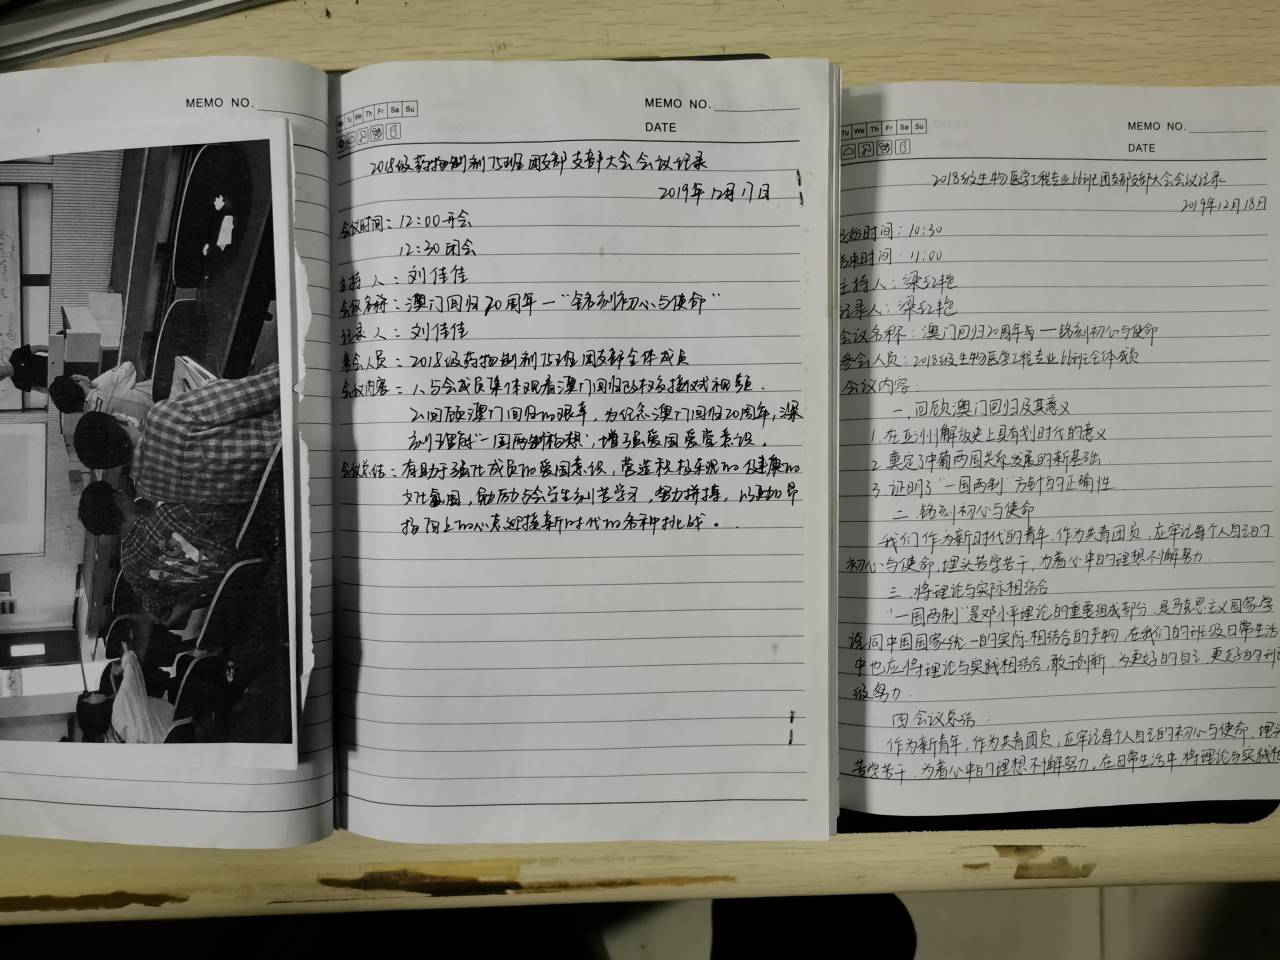 MEMO NO.
Tu We Th Fr Sa Su
MEMO NO.
DATE
2018级药物制剂75班团支部支部大会会议记录
2019年12月17日
会议时间：12:00开会
12:30闭会
主持人：刘佳佳
会议名称：澳门回归20周年—"铭刻初心与使命"
记录人：刘佳佳
参会人员：2018级药物制剂75班团支部全体成员
会议内容：1.与会成员集体观看澳门回归政权交接仪式视频.
2.回顾澳门回归的艰辛，为纪念澳门回归20周年，深
刻理解"一国两制构想"，增强爱国爱党意识。
会议总结：有助于强化成员的爱国意识，营造积极乐观的健康的
文化氛围，鼓励与会学生刻苦学习，努力拼搏，以更加昂
扬向上的心态迎接新时代的各种挑战。
Tu We Th Fr Sa Su
MEMO NO.
DATE
2018级生物医学工程专业66班团支部支部大会会议记录
2019年12月18日
开始时间：10:30
结束时间：11:00
主持人：梁红艳
记录人：梁红艳
会议名称：澳门回归20周年与—铭刻初心与使命
参会人员：2018级生物医学工程专业66班全体成员
会议内容：
一.回顾澳门回归及其意义
1.在亚洲解放史上具有划时代的意义
2.奠定了中葡两国关系发展的新基础.
3.证明了"一国两制"方针的正确性.
二.铭刻初心与使命
我们作为新时代的青年，作为共青团员，应牢记每个人自己的
初心与使命，埋头苦学苦干，为着心中的理想不懈努力.
三.将理论与实际相结合
"一国两制"是邓小平理论的重要组成部分，是马克思主义国家学
说同中国国家统一的实际相结合的产物，在我们的班级日常生活
中也应将理论与实践相结合，敢于创新，为更好的自己，更好的班
级努力.
四.会议总结.
作为新青年，作为共青团员，应牢记每个人自己的初心与使命，埋头
苦学苦干，为着心中的理想不懈努力。在日常生活中，将理论与实践相